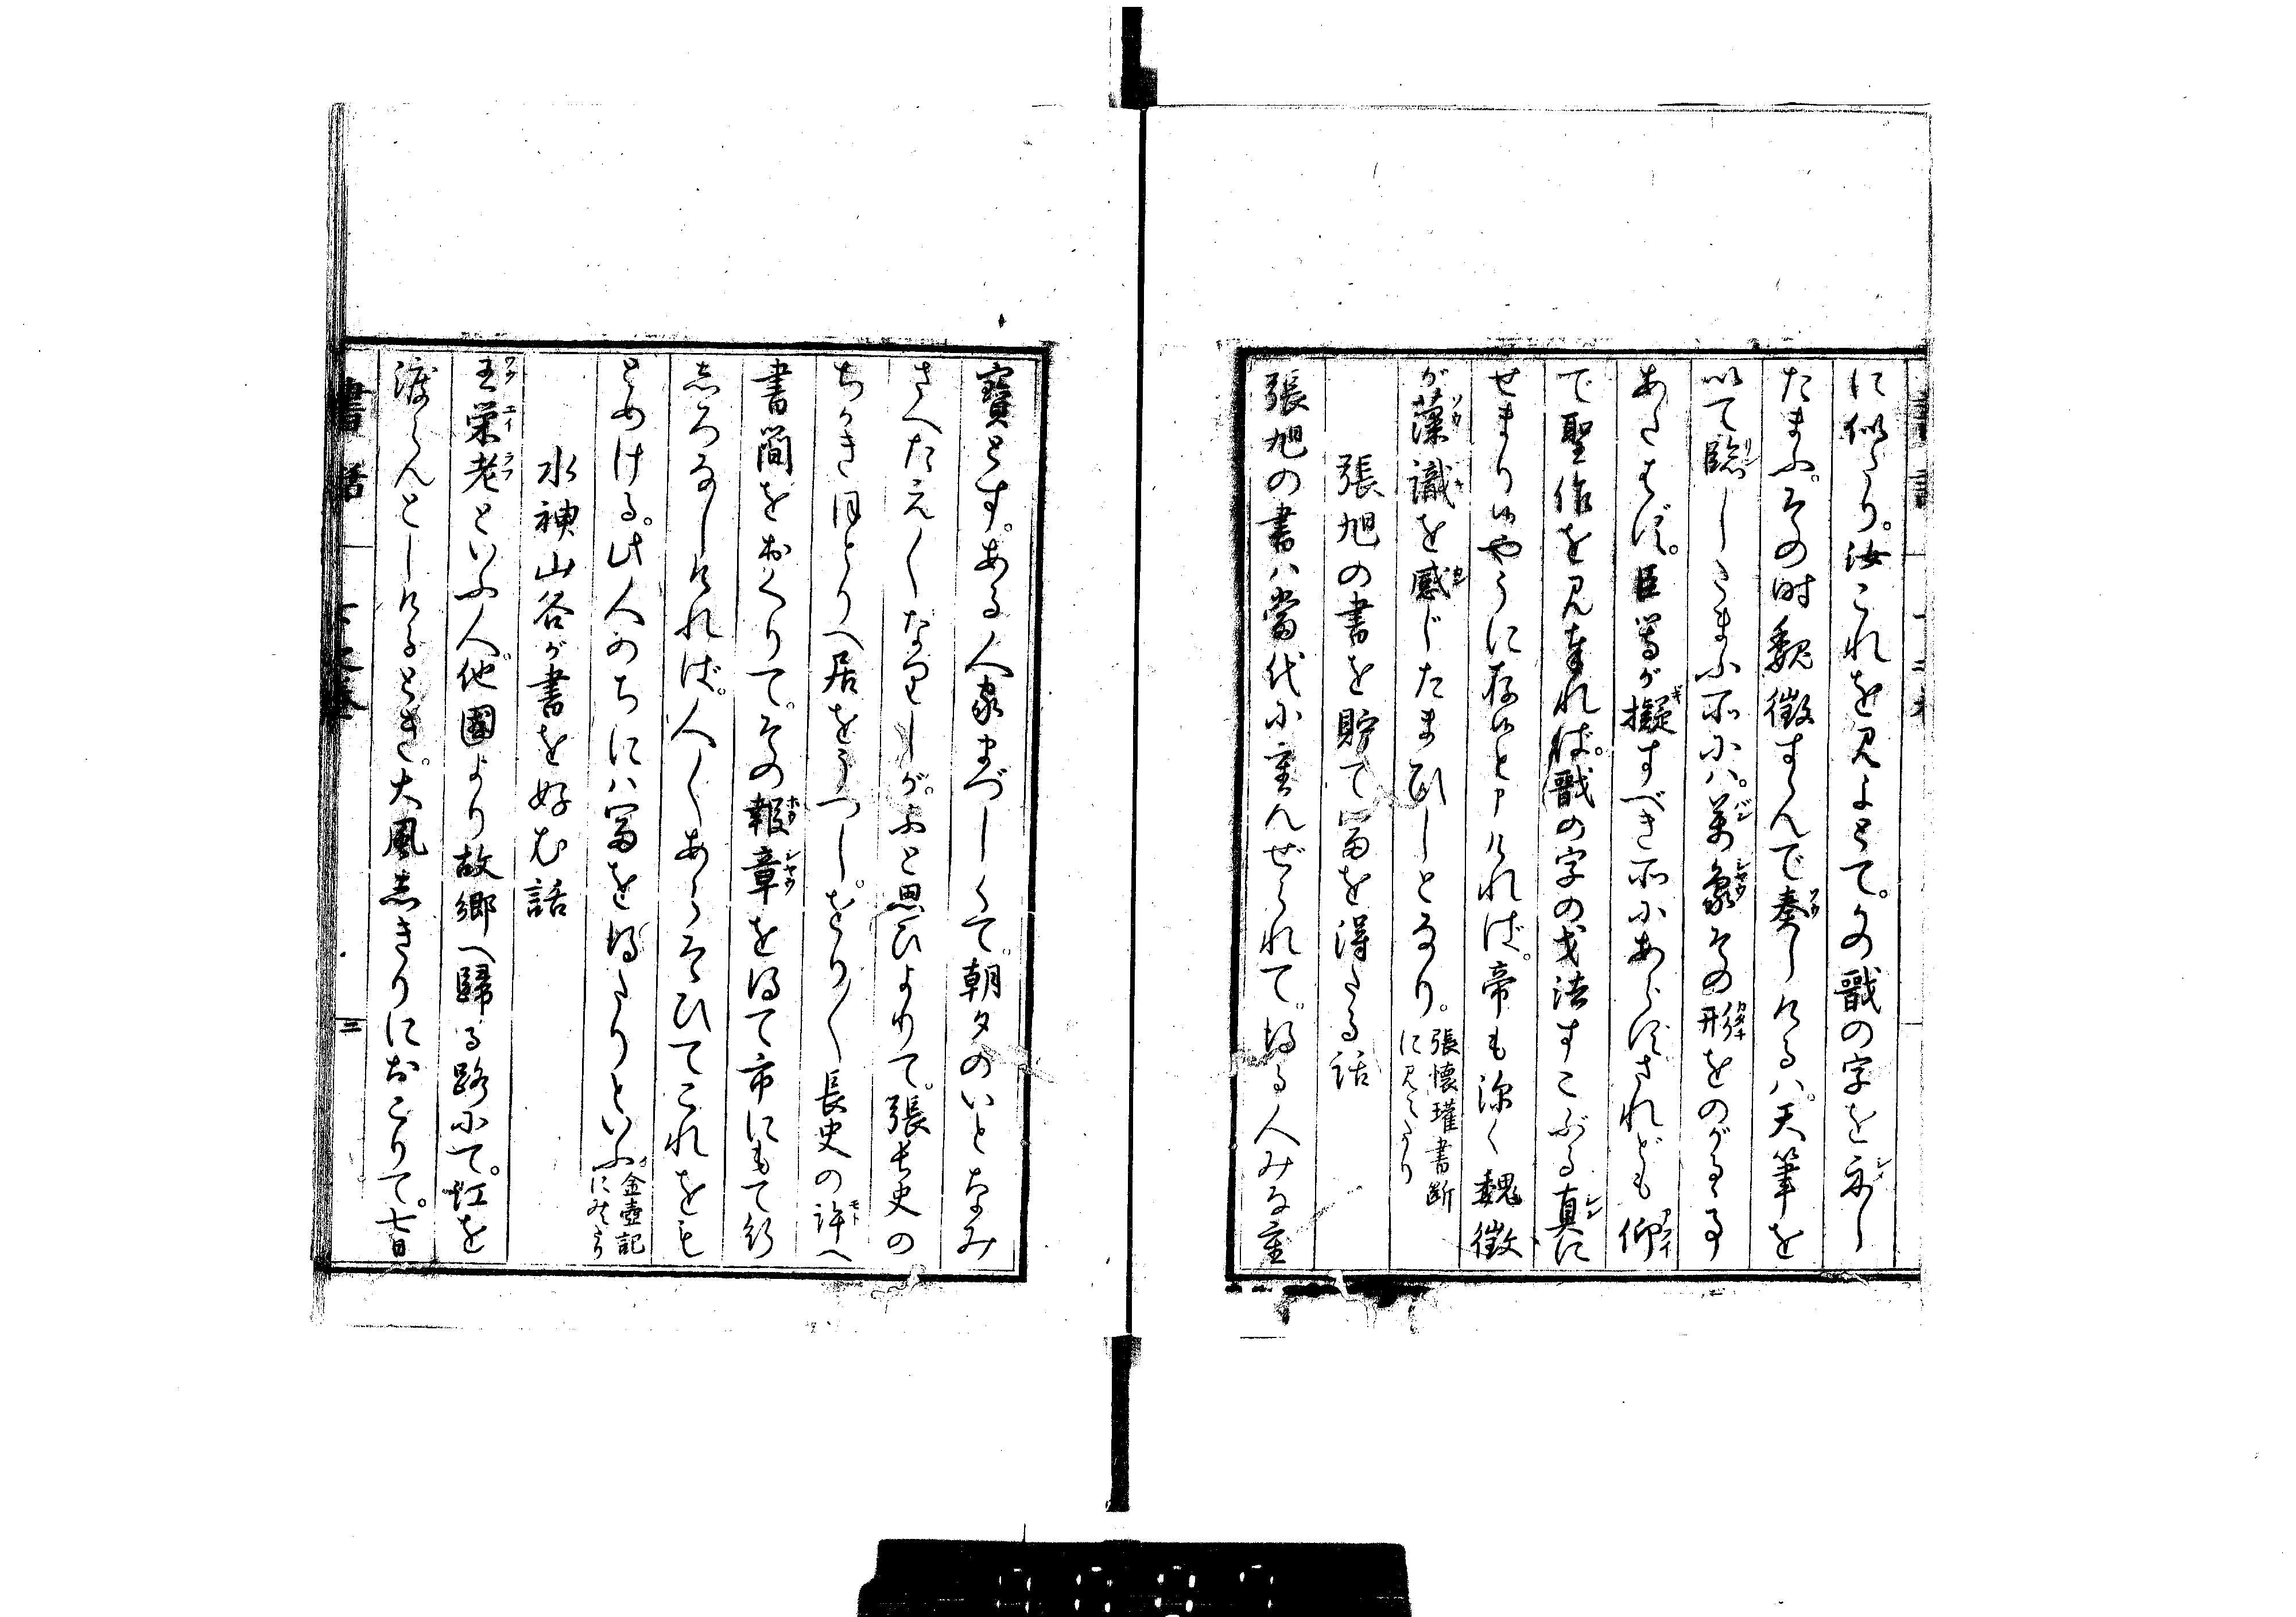 に似たり。汝これを見よとて。かの戩の字を示し
たまふ。その時魏徴すゝんで奏しけるハ。天筆を
以て臨したまふ所にハ。萬象その形をのがるゝ事
あたはず。臣等が擬すべき所にあらずされども仰
で聖作を見奉れば。戩の字の戈法すこぶる真に
せまり候やうに存候と申けれバ。帝も深く魏徴
が藻識を感じたまひしとなり。張懐瓘書断
に見えたり
張旭の書を貯て富を得たる話
張旭の書ハ當代に重んぜられて。得る人みな重
寶とす。ある人家まづしくて。朝夕のいとなみ
さへたえ〳〵なりしが。ふと思ひよりて。張長史の
ちかきほとりへ居をうつし。をり〳〵長史の許へ
書簡をおくりて。その報章を得て市にもて行
しろなしければ。人〳〵あらそひてこれをも
とめける。此人のちにハ富を得たりといふ。金壺記
にみえたり
水神山谷が書を好む話
王栄老といふ人。他國より故郷へ歸る路にて。江を
渡らんとしけるとき。大風しきりにおこりて。七日
書話
三